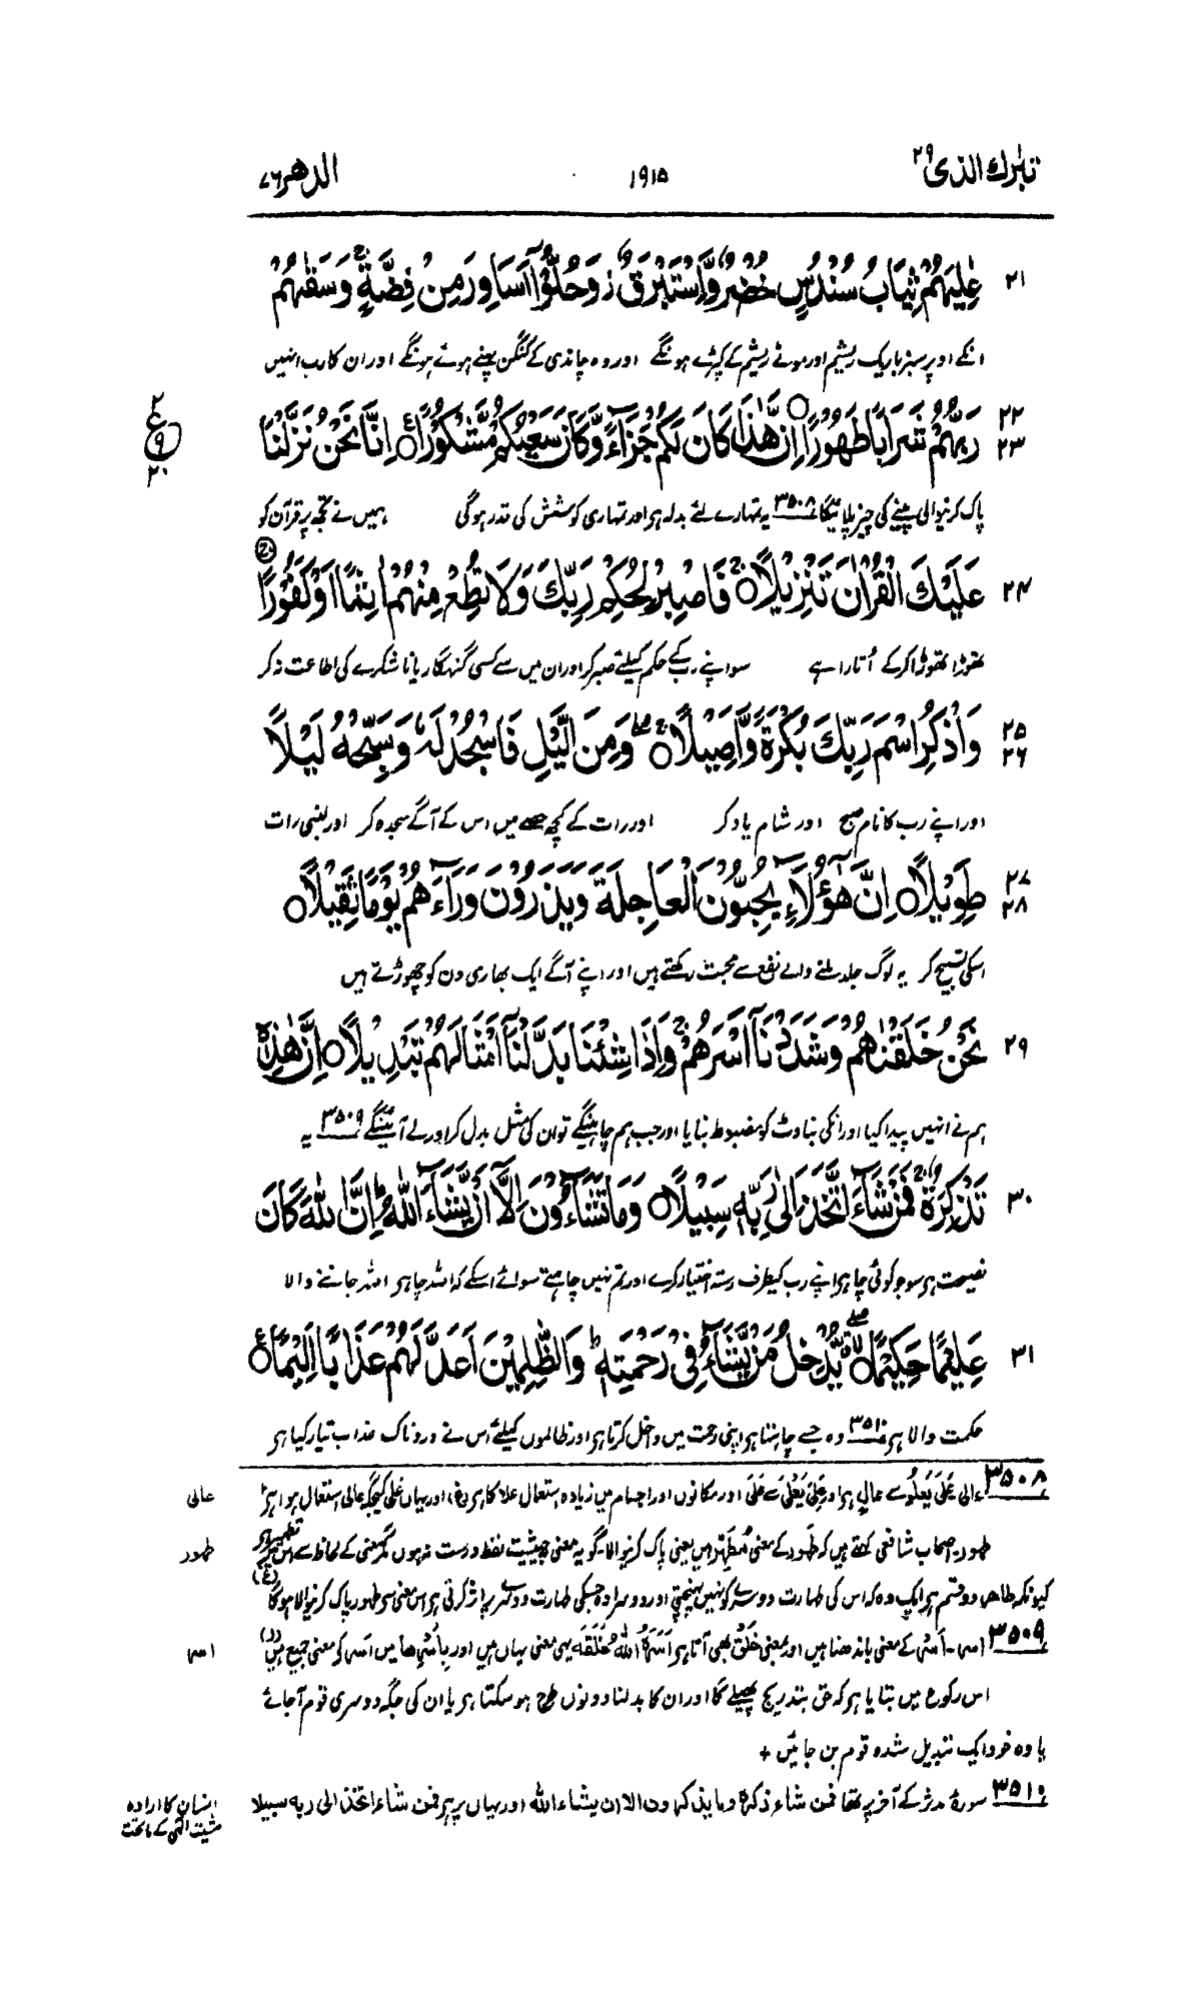 تبٰرك الذی ۲۹ ۱۹۱۵ الدهر ۷۶
۲۱ عٰلِیَهُمْ ثِیَابُ سُنْدُسٍ خُضْرٌ وَّاِسْتَبْرَقٌ ز وَّحُلُّوْۤا اَسَاوِرَ مِنْ فِضَّةٍ ۚ وَسَقٰىهُمْ
انکے اوپر سبز باریک ریشم اور موٹے ریشم کے کپڑے ہونگے اور وہ چاندی کے کنگن پہنے ہوئے ہونگے اور ان کا رب انہیں
۲۲ ۲۳ رَبُّهُمْ شَرَابًا طَهُوْرًا ۝ اِنَّ هٰذَا كَانَ لَكُمْ جَزَآءً وَّكَانَ سَعْیُكُمْ مَّشْكُوْرًا ۝ع اِنَّا نَحْنُ نَزَّلْنَا
۲ ع ۹ ۲۰
پاک کرنیوالی پینے کی چیز پلائیگا ۳۵۰۸ یہ تمہارے لئے بدلہ ہے اور تمہاری کوشش کی قدر ہوگی ہمیں نے تجھ پر قرآن کو
۲۴ عَلَیْكَ الْقُرْاٰنَ تَنْزِیْلًا ۝ۚ فَاصْبِرْ لِحُكْمِ رَبِّكَ وَلَا تُطِعْ مِنْهُمْ اٰثِمًا اَوْ كَفُوْرًا ۝ۚ
تھوڑا تھوڑا کرکے اُتارا ہے سو اپنے رب کے حکم کیلئے صبر کر اور ان میں سے کسی گنہگار یا ناشکرے کی اطاعت نہ کر
۲۵ ۲۶ وَاذْكُرِ اسْمَ رَبِّكَ بُكْرَةً وَّاَصِیْلًا ۝ۚۖ وَمِنَ الَّیْلِ فَاسْجُدْ لَهٗ وَسَبِّحْهُ لَیْلًا
اور اپنے رب کا نام صبح اور شام یاد کر اور رات کے کچھ حصے میں اس کے آگے سجدہ کر اور لمبی رات
۲۷ ۲۸ طَوِیْلًا ۝ اِنَّ هٰۤؤُلَآءِ یُحِبُّوْنَ الْعَاجِلَةَ وَیَذَرُوْنَ وَرَآءَهُمْ یَوْمًا ثَقِیْلًا ۝
اسکی تسبیح کر یہ لوگ جلد ملنے والے نفع سے محبت رکھتے ہیں اور اپنے آگے ایک بھاری دن کو چھوڑتے ہیں
۲۹ نَحْنُ خَلَقْنٰهُمْ وَشَدَدْنَاۤ اَسْرَهُمْ ۚ وَاِذَا شِئْنَا بَدَّلْنَاۤ اَمْثَالَهُمْ تَبْدِیْلًا ۝ اِنَّ هٰذِهٖ
ہم نے انہیں پیدا کیا اور انکی بناوٹ کو مضبوط بنایا اور جب ہم چاہینگے تو ان کی مثل بدل کر اور لے آئینگے ۳۵۰۹ یہ
۳۰ تَذْكِرَةٌ ۚ فَمَنْ شَآءَ اتَّخَذَ اِلٰى رَبِّهٖ سَبِیْلًا ۝ وَمَا تَشَآءُوْنَ اِلَّاۤ اَنْ یَّشَآءَ اللّٰهُ ؕ اِنَّ اللّٰهَ كَانَ
نصیحت ہے سو جو کوئی چاہے اپنے رب کیطرف رستہ اختیار کرے اور تم نہیں چاہتے سوائے اسکے کہ اللہ چاہے اللہ جاننے والا
۳۱ عَلِیْمًا حَكِیْمًا ۝ۗۖ یُّدْخِلُ مَنْ یَّشَآءُ فِیْ رَحْمَتِهٖ ؕ وَالظّٰلِمِیْنَ اَعَدَّ لَهُمْ عَذَابًا اَلِیْمًا ۝ع
حکمت والا ہے ۳۵۱۰ وہ جسے چاہتا ہے اپنی رحمت میں داخل کرتا ہے اور ظالموں کیلئے اس نے دردناک عذاب تیار کیا ہے
۳۵۰۸ عالی عَلَیَ یَعْلُو سے عالٍ ہے اور عَلِیَ یَعْلٰی سے عَلِیٌّ اور مکانوں اور اجسام میں زیادہ استعمال علا کا ہے (غ) اور یہاں علٰی کیجگہ عالی استعمال ہوا ہے
عالی
طہور۔ اصحاب شافعی کہتے ہیں کہ طَہور کے معنی مُطَہِّر ہیں یعنی پاک کرنیوالا۔ گو یہ معنی بحیثیت لفظ درست نہ ہوں مگر معنی کے لحاظ سے اس میں تطہیر ہے
طہور
کیونکہ طاہر دو قسم ہے ایک وہ کہ اس کی طہارت دوسرے کو نہیں پہنچتی اور دوسرا وہ جسکی طہارت دوسرے پر اثر کرتی ہے اس معنی سے طہور پاک کرنیوالا ہوگا (غ)
۳۵۰۹ اسر۔ اَسْر کے معنی باندھنا ہیں اور بمعنی خَلْق بھی آتا ہے اَسَرَہُ اللّٰهُ خَلَقَہ یہی معنی یہاں ہیں اور بِأَسْرِھا میں اَسر کے معنی جمیع ہیں (ل)
اسر
اس رکوع میں بتایا ہے کہ حق بتدریج پھیلے گا اور ان کا بدلنا دونوں طرح ہوسکتا ہے یا ان کی جگہ دوسری قوم آجائے
یا وہ خود ایک تبدیل شدہ قوم بن جائیں +
۳۵۱۰ سورۂ مدثر کے آخر پر تھا فمن شاء ذکرہ وما یذکرون الا ان یشاء اللہ اور یہاں پر ہے فمن شاء اتخذ الی ربہ سبیلا
انسان کا ارادہ
مشیت الٰہی کے ماتحت